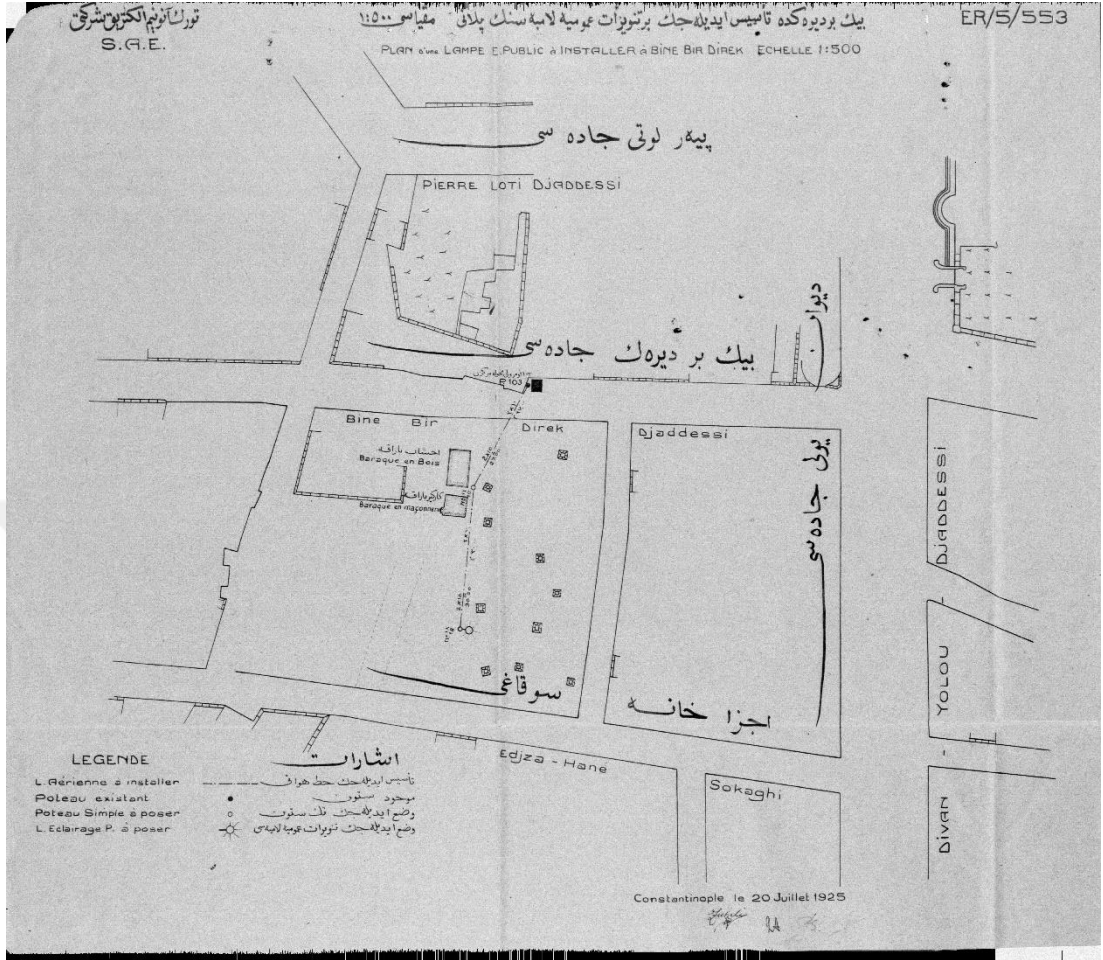 تورك آنونیم الكتریق شركتی
S.A.E.
بیك بردیركده تأسیس ایدیله‌جك برتنویرات عمومیه لامبه سنك پلانی مقیاسی ١:٥٠٠
PLAN d'une LAMPE E.PUBLIC à INSTALLER à BINE BIR DIREK ECHELLE 1:500
ER/5/553
پیەر لوتی جاده سی
PIERRE LOTI DJADDESSI
دیوان
بیك بر دیرەك جاده سی
P 103
Bine Bir Direk Djaddessi
اخشاب باراقه
Baraque en Bois
كارگیر باراقه
Baraque en maçonnerie
یولی جاده سی
DIVAN - YOLOU - DJADDESSI
اجزا خانه سوقاغی
Edjza - Hane Sokaghi
LEGENDE
اشارات
L. Aérienne à installer
تأسیس ایدیله‌جك خط هوائی
Poteau existant
موجود ستون
Poteau Simple à poser
وضع ایدیله‌جك تك ستون
L. Eclairage P. à poser
وضع ایدیله‌جك تنویرات عمومیه لامبه‌سی
Constantinople le 20 Juillet 1925